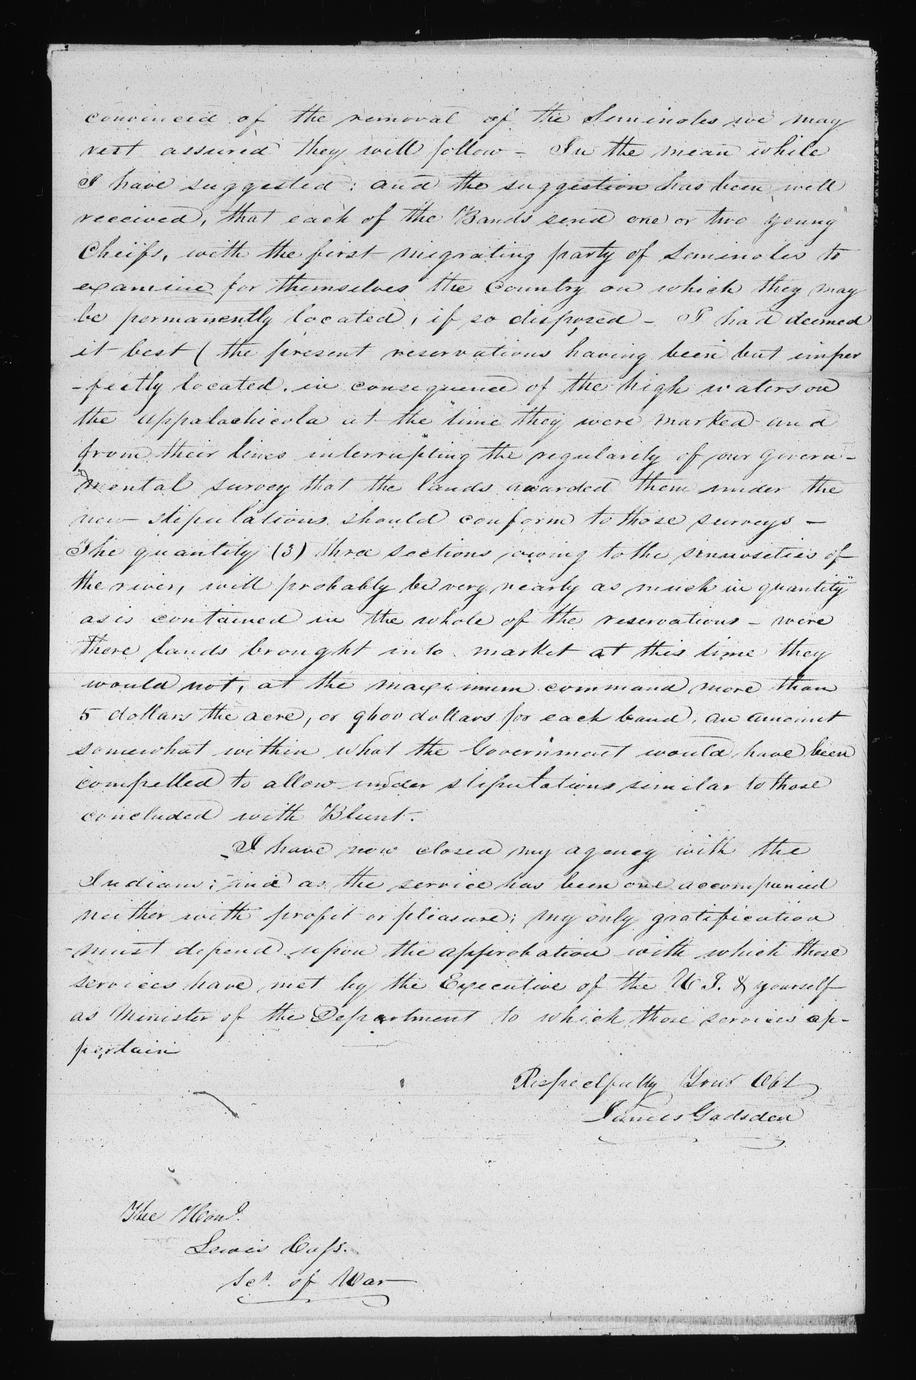 convinced of the removal of the Seminoles we may
rest assured they will follow - In the mean while
I have suggested; and the suggestion has been well
received, that each of the Bands send one or two young
Cheifs, with the first migrating party of Seminoles to
examine for themselves the Country on which they may
be permanently located, if so disposed - I had deemed
it best (the present reservations having been but imper
-fectly located, in consequence of the high waters on
the Appalachicola at the time they were marked and
from their lines interrupting the regularity of our govern-
mental survey that the lands awarded them under the
new stipulations should conform to those surveys -
The quantity (3) three sections owing to the sinuosities of
the river, will probably be very nearly as much in quantity
as is contained in the whole of the reservations - were
there lands brought into market at this time they
would not, at the maximum command more than
5 dollars the acre, or 9600 dollars for each band, an amount
somewhat within what the Government would have been
compelled to allow under stipulations similar to those
concluded with Blunt.
I have now closed my agency with the
Indians; and as the service has been one accompanied
neither with profit or pleasure; my only gratification
must depend upon the approbation with which those
services have met by the Executive of the U S. & yourself
as Minister of the Department to which those services ap-
pertain
Respectfully Your Obt
James Gadsden
The Honl.
Lewis Cass.
Sec. of War